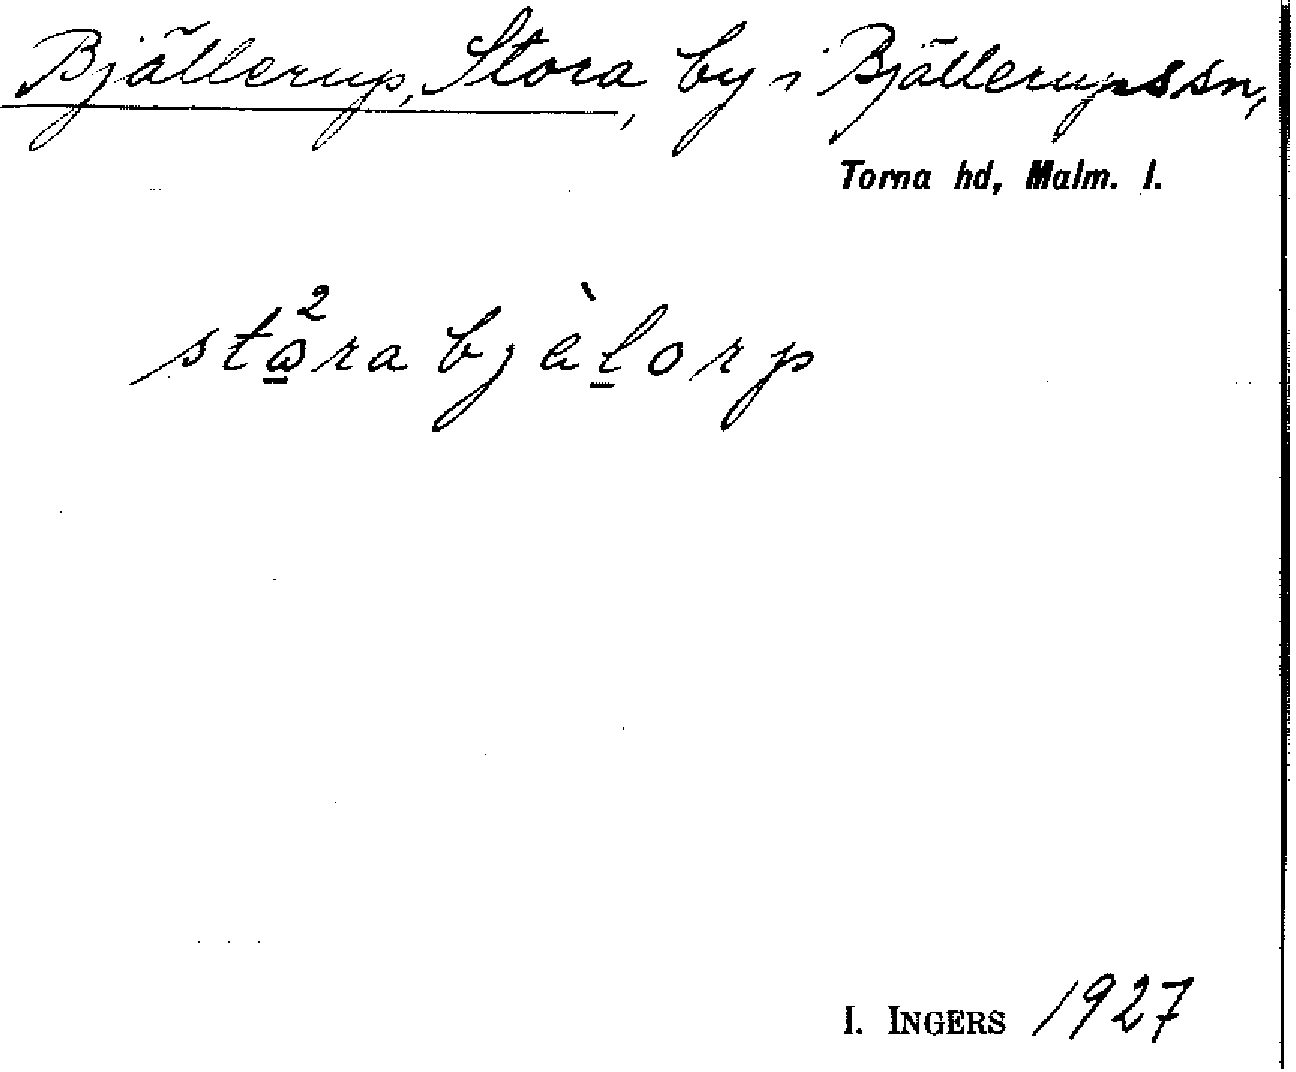 Bjällerup, Stora, by i Bjällerups sn,
Torna hd, Malm. l.
stω̱²ra bjὲḻorp
I. INGERS 1927